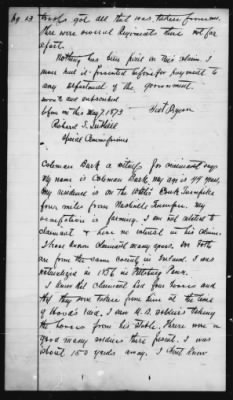 Pg 13
troops got all that was taken from me.
There were several Regiments there not far
apart.
Nothing has been paid on this claim. I
never had it presented before for payment to
any department of the government.
Sworn to and subscribed
before me this May 7, 1873
Robert S. Tuthill
Special Commissioner
Coleman Bark a witness for claimant says
My name is Coleman Bark, my age is 44 years,
My residence is on the White's Creek Turnpike
four miles from Nashville Tennessee. My
occupation is farming. I am not related to
claimant & have no interest in his claim.
I have known claimant many years. We both
are from the same county in Ireland. I was
naturalized in 1856 in Pittsburg Penn.
I knew that claimant had four horses and
that they were taken from him at the time
of Hood's raid. I saw U.S. soldiers taking
the horses from his stable. There were a
good many soldiers there present. I was
about 150 yards away. I don't know